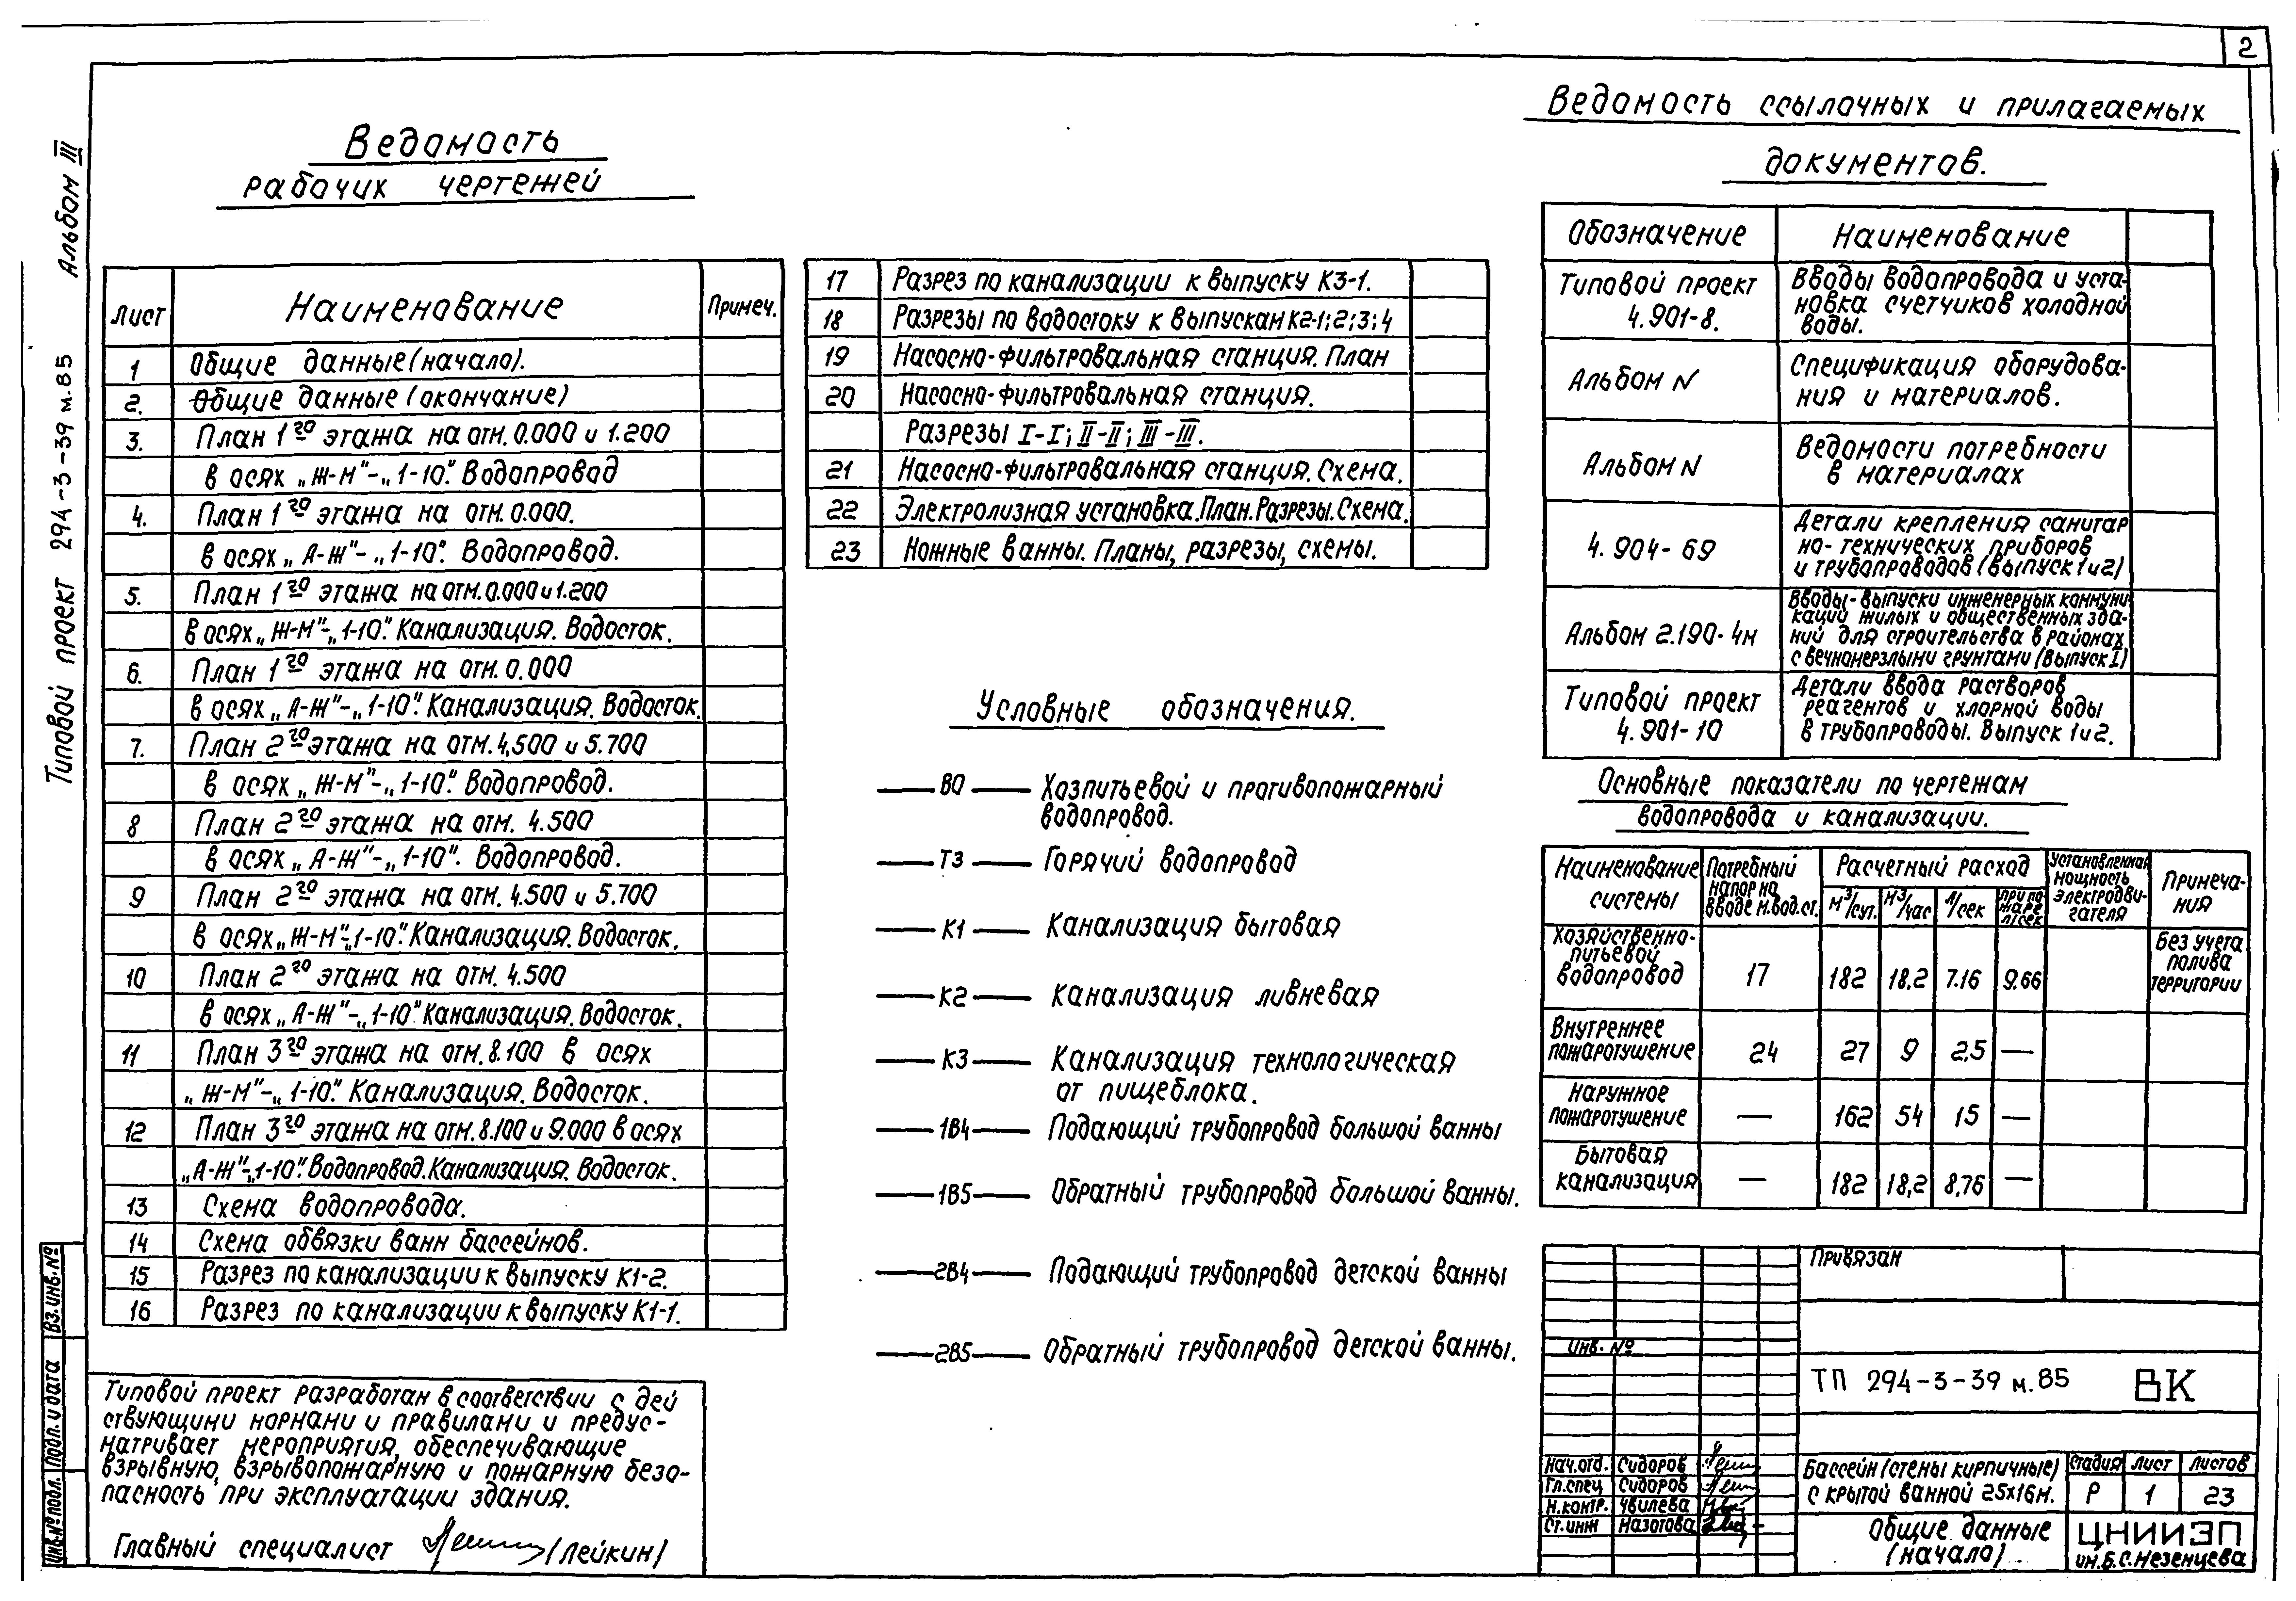 2
Альбом III
Типовой проект 294-3-39 м.85
Ведомость
рабочих чертежей
Лист Наименование Примеч.
1 Общие данные (начало).
2. Общие данные (окончание)
3. План 1го этажа на отм. 0.000 и 1.200
в осях „Ж-М"-„1-10". Водопровод
4. План 1го этажа на отм. 0.000.
в осях „А-Ж"-„1-10". Водопровод.
5. План 1го этажа на отм. 0.000 и 1.200
в осях „Ж-М"-„1-10". Канализация. Водосток.
6. План 1го этажа на отм. 0.000
в осях „А-Ж"-„1-10". Канализация. Водосток.
7. План 2го этажа на отм. 4.500 и 5.700
в осях „Ж-М"-„1-10". Водопровод.
8 План 2го этажа на отм. 4.500
в осях „А-Ж"-„1-10". Водопровод.
9 План 2го этажа на отм. 4.500 и 5.700
в осях „Ж-М"-„1-10". Канализация. Водосток.
10 План 2го этажа на отм. 4.500
в осях „А-Ж"-„1-10". Канализация. Водосток.
11 План 3го этажа на отм. 8.100 в осях
„Ж-М"-„1-10". Канализация. Водосток.
12 План 3го этажа на отм. 8.100 и 9.000 в осях
„А-Ж"-„1-10". Водопровод. Канализация. Водосток.
13 Схема водопровода.
14 Схема обвязки ванн бассейнов.
15 Разрез по канализации к выпуску К1-2.
16 Разрез по канализации к выпуску К1-1.
17 Разрез по канализации к выпуску К3-1.
18 Разрезы по водостоку к выпускам К2-1;2;3;4
19 Насосно-фильтровальная станция. План
20 Насосно-фильтровальная станция.
Разрезы I-I; II-II; III-III.
21 Насосно-фильтровальная станция. Схема.
22 Электролизная установка. План. Разрезы. Схема.
23 Ножные ванны. Планы, разрезы, схемы.
Условные обозначения.
В0 Хозпитьевой и противопожарный
водопровод.
Т3 Горячий водопровод
К1 Канализация бытовая
К2 Канализация ливневая
К3 Канализация технологическая
от пищеблока.
1В4 Подающий трубопровод большой ванны
1В5 Обратный трубопровод большой ванны.
2В4 Подающий трубопровод детской ванны
2В5 Обратный трубопровод детской ванны.
Ведомость ссылочных и прилагаемых
документов.
Обозначение Наименование
Типовой проект
4.901-8.
Вводы водопровода и уста-
новка счетчиков холодной
воды.
Альбом N
Спецификация оборудова-
ния и материалов.
Альбом N
Ведомости потребности
в материалах
4.904-69
Детали крепления санитар
но-технических приборов
и трубопроводов (выпуск 1 и 2)
Альбом 2.190-4м
Вводы-выпуски инженерных коммуни
каций жилых и общественных зда-
ний для строительства в районах
с вечномерзлыми грунтами (выпуск I)
Типовой проект
4.901-10
Детали ввода растворов
реагентов и хлорной воды
в трубопроводы. Выпуск 1 и 2.
Основные показатели по чертежам
водопровода и канализации.
Наименование
системы
Потребный
напор на
вводе м.вод.ст.
Расчетный расход
м³/сут. м³/час л/сек
при по-
жаре
л/сек
Установленная
мощность
электродви-
гателя
Примеча-
ния
Хозяйственно-
питьевой
водопровод 17 182 18,2 7.16 9.66
Без учета
полива
территории
Внутреннее
пожаротушение 24 27 9 2,5 —
Наружное
пожаротушение — 162 54 15 —
Бытовая
канализация — 182 18,2 8,76 —
Типовой проект разработан в соответствии с дей
ствующими нормами и правилами и предус-
матривает мероприятия, обеспечивающие
взрывную, взрывопожарную и пожарную безо-
пасность при эксплуатации здания.
Главный специалист (Лейкин)
Вз. инв. №
Подп. и дата
Инв. № подл.
Привязан
Инв. №
ТП 294-3-39 м.85 ВК
Нач.отд. Сидоров
Гл.спец Сидоров
Н.контр. Увилева
Ст.инж Назотова
Бассейн (стены кирпичные)
с крытой ванной 25х16м.
Стадия Лист Листов
Р 1 23
Общие данные
(начало)
ЦНИИЭП
им. Б.С. Мезенцева